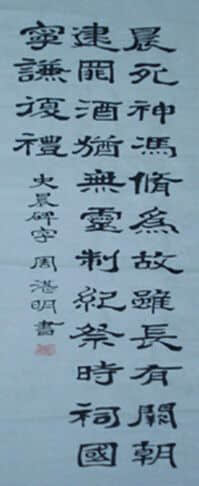 晨死神馮脩為故雖長有闕朝
建罔酒猶無靈制紀祭時祠國
寧謙復禮
史晨碑字 周湛明書